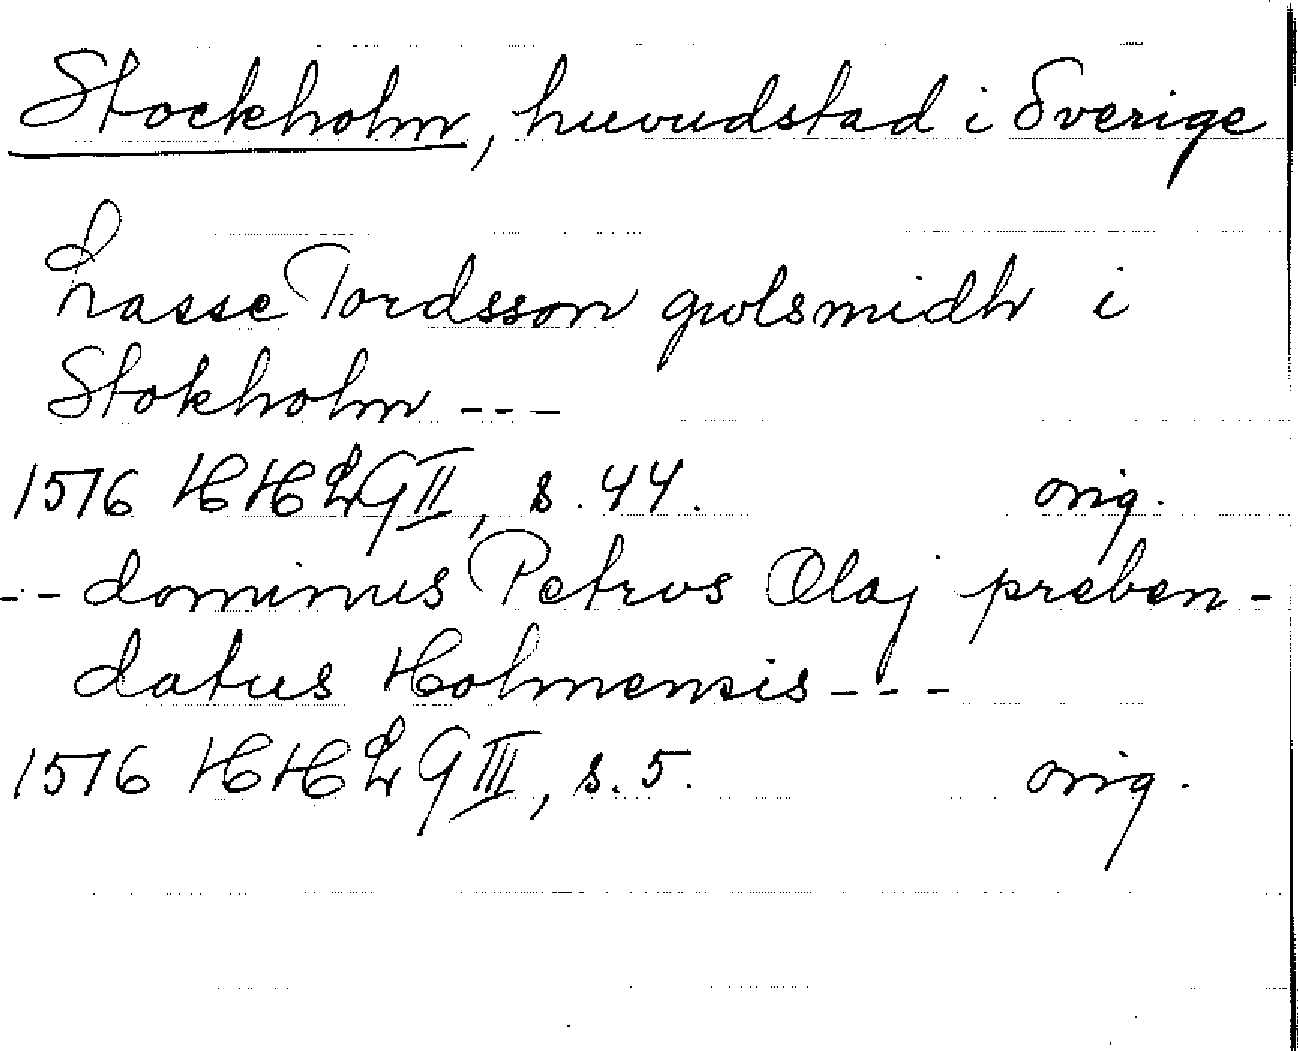 Stockholm, huvudstad i Sverige
Lasse Tordsson gwlsmidh i
Stokholm ---
1576 HHLG II, s. 44. orig.
-- dominus Petrus Olaj preben-
datus Holmensis ---
1576 HHLG III, s. 5. orig.